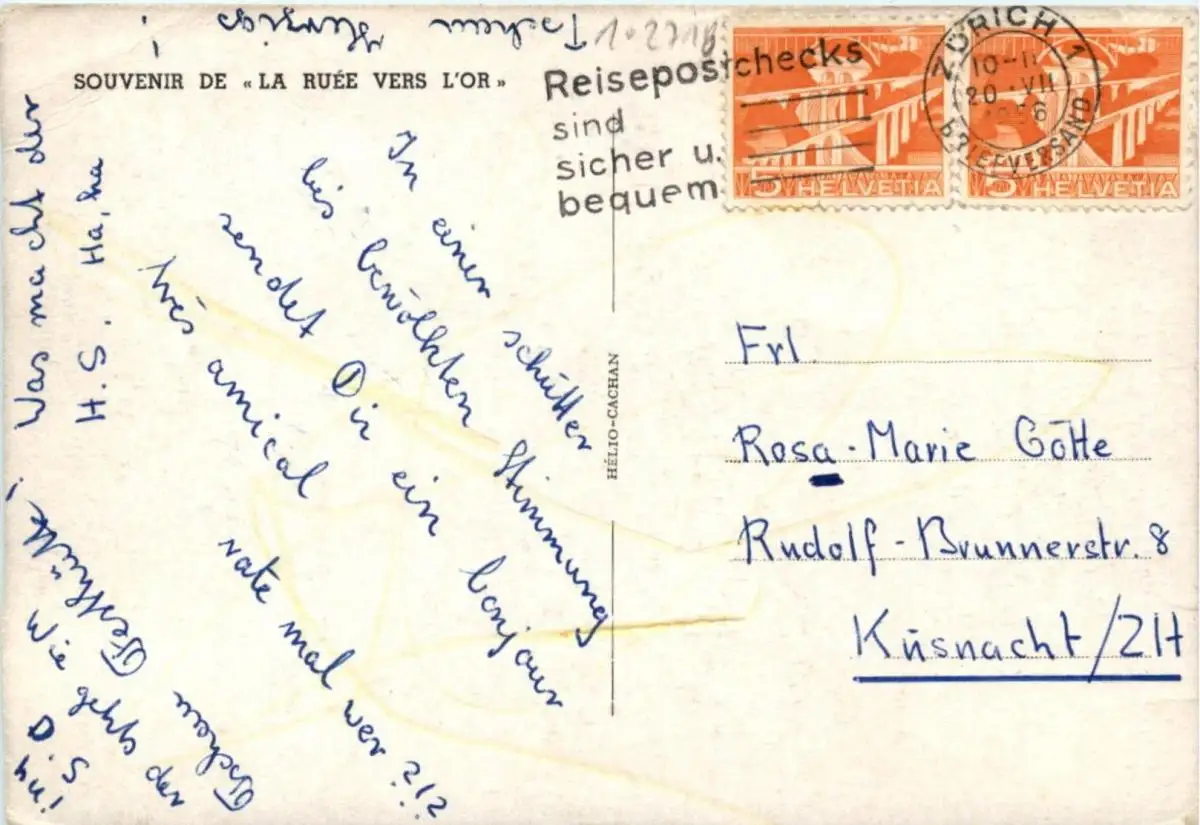 SOUVENIR DE « LA RUÉE VERS L'OR »
1.2718
Reisepostchecks
sind
sicher u.
bequem
ZÜRICH 1
10-11
20.VII
1956
BRIEFVERSAND
5 HELVETIA
5 HELVETIA
In einer schütter
bis bewölkten Stimmung
sendet Dir ein bonjour
très amical
rate mal wer?!?
Was macht der
H.S. Ha, ha
Wie gehts der
D.S
hü!
Tschau
HÉLIO-CACHAN
Frl
Rosa-Marie Götte
Rudolf-Brunnerstr. 8
Küsnacht/ZH